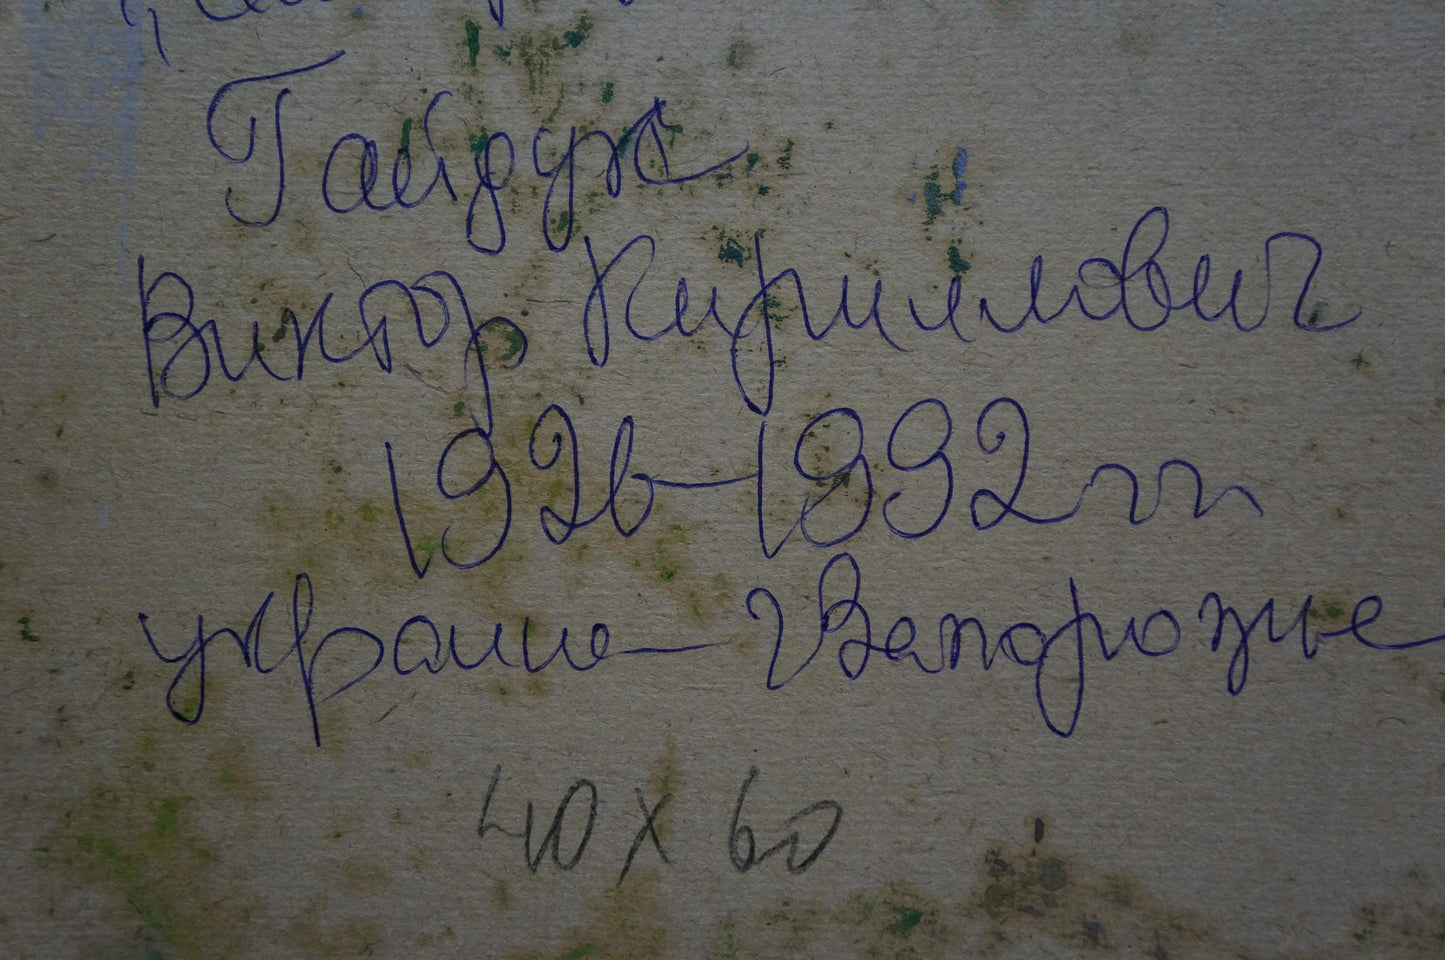 Гайдук
Виктор Кириллович
1926-1992 гг
украина - г Запорожие
40 х 60